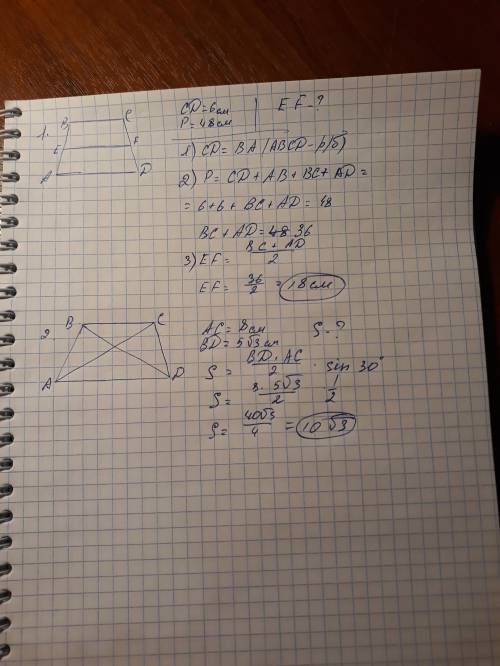 1.
B C
E F
A D
CD = 6 см | EF - ?
P = 48 см
1) CD = BA (ABCD - р/б)
2) P = CD + AB + BC + AD =
= 6 + 6 + BC + AD = 48
BC + AD = 48 36
3) EF = BC + AD / 2
EF = 36 / 2 = 18 см
2.
B C
A D
AC = 8 см S - ?
BD = 5√3 см
S = BD · AC / 2 · sin 30°
S = 8 · 5√3 / 2 1 / 2
S = 40√3 / 4 = 10√3